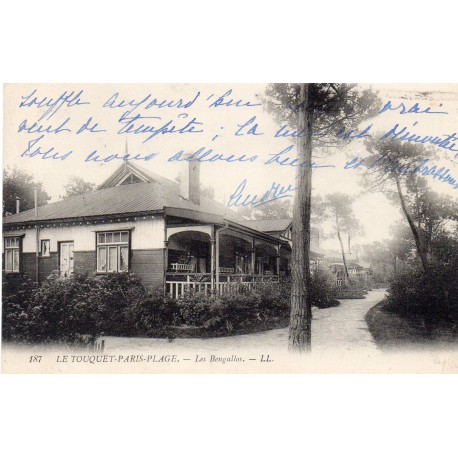 souffle aujourd'hui un vrai
vent de tempête; la mer est démontée
Tous nous allons bien et embrassons
André
187 LE TOUQUET-PARIS-PLAGE. — Les Bengallos. — LL.